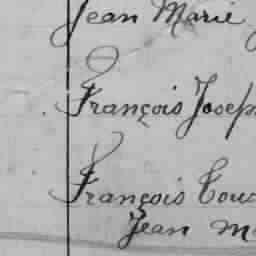 Jean Marie
François Joseph
François
Jean M